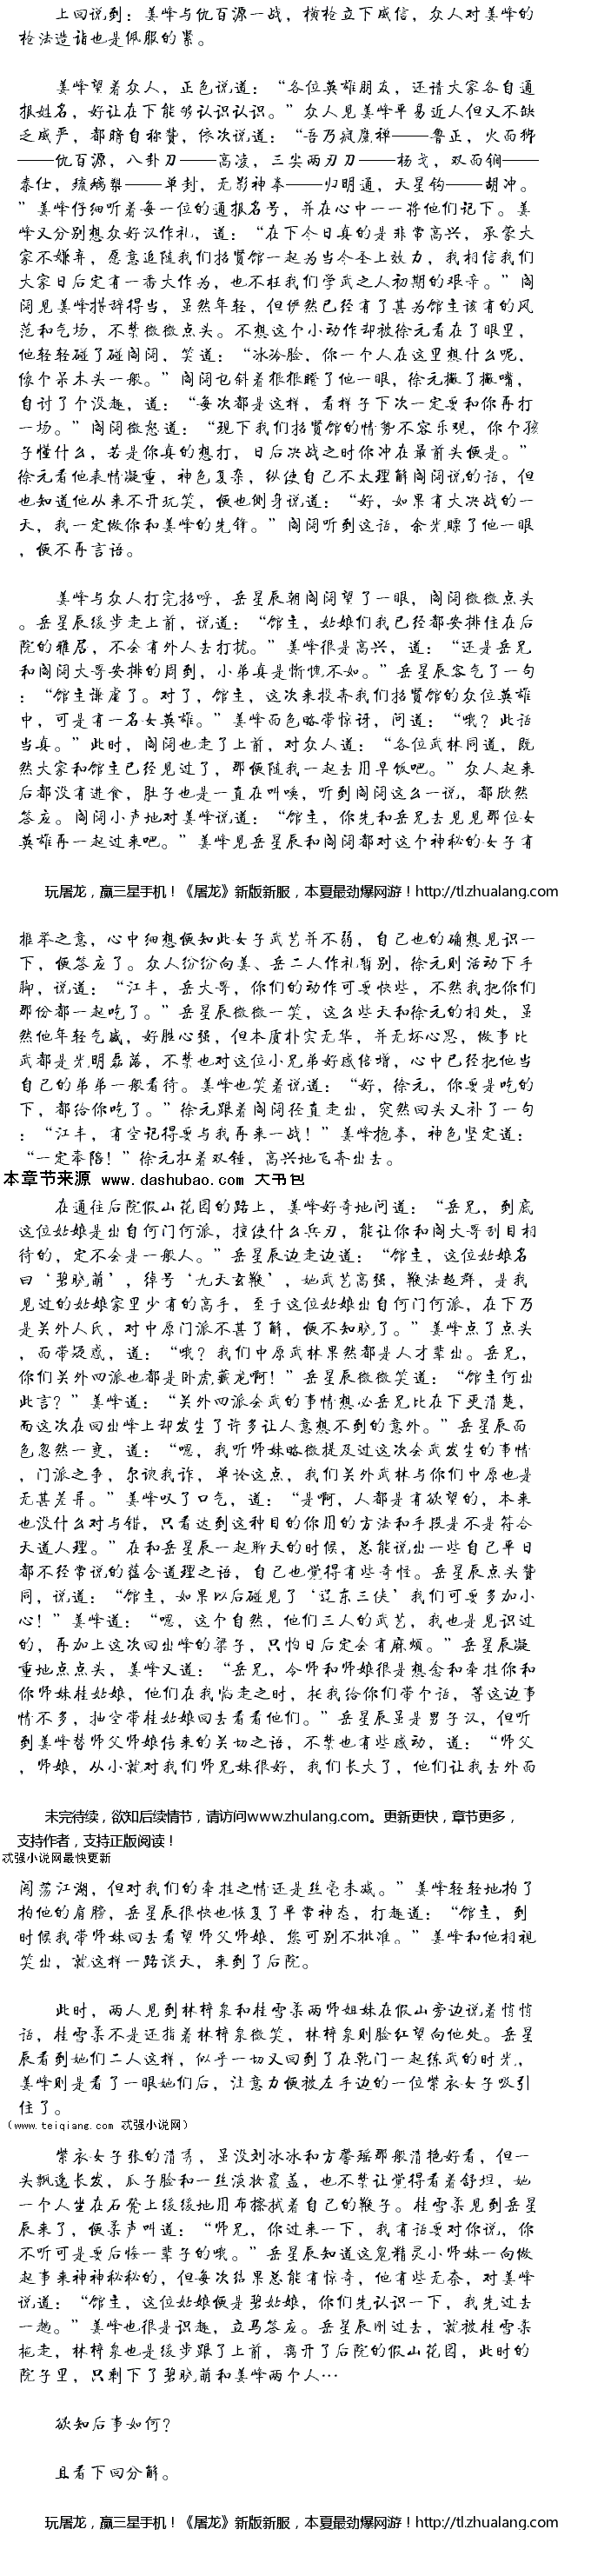 上回说到：姜峰与仇百源一战，横枪立下威信，众人对姜峰的
枪法造诣也是佩服的紧。
姜峰望着众人，正色说道：“各位英雄朋友，还请大家各自通
报姓名，好让在下能够认识认识。”众人见姜峰平易近人但又不缺
乏威严，都暗自称赞，依次说道：“吾乃寂魔禅——鲁正，火面狮
——仇百源，八卦刀——高凌，三尖两刃刀——杨戈，双面锏——
秦仕，琉璃槊——单封，无影神拳——归明通，天星钩——胡冲。
”姜峰仔细听着每一位的通报名号，并在心中一一将他们记下。姜
峰又分别想众好汉作礼，道：“在下今日真的是非常高兴，承蒙大
家不嫌弃，愿意追随我们招贤馆一起为当今圣上效力，我相信我们
大家日后定有一番大作为，也不枉我们学武之人初期的艰辛。”阁
阔见姜峰措辞得当，虽然年轻，但俨然已经有了甚为馆主该有的风
范和气场，不禁微微点头。不想这个小动作却被徐元看在了眼里，
他轻轻碰了碰阁阔，笑道：“冰冷脸，你一个人在这里想什么呢，
像个呆木头一般。”阁阔也斜着狠狠瞪了他一眼，徐元撇了撇嘴，
自讨了个没趣，道：“每次都是这样，看样子下次一定要和你再打
一场。”阁阔微怒道：“现下我们招贤馆的情势不容乐观，你个孩
子懂什么，若是你真的想打，日后决战之时你冲在最前头便是。”
徐元看他表情凝重，神色复杂，纵使自己不太理解阁阔说的话，但
也知道他从来不开玩笑，便也侧身说道：“好，如果有大决战的一
天，我一定做你和姜峰的先锋。”阁阔听到这话，余光瞟了他一眼
，便不再言语。
姜峰与众人打完招呼，岳星辰朝阁阔望了一眼，阁阔微微点头
。岳星辰缓步走上前，说道：“馆主，姑娘们我已经都安排住在后
院的雅居，不会有外人去打扰。”姜峰很是高兴，道：“还是岳兄
和阁阔大哥安排的周到，小弟真是惭愧不如。”岳星辰客气了一句
：“馆主谦虚了。对了，馆主，这次来投奔我们招贤馆的众位英雄
中，可是有一名女英雄。”姜峰面色略带惊讶，问道：“哦？此话
当真。”此时，阁阔也走了上前，对众人道：“各位武林同道，既
然大家和馆主已经见过了，那便随我一起去用早饭吧。”众人起来
后都没有进食，肚子也是一直在叫唤，听到阁阔这么一说，都欣然
答应。阁阔小声地对姜峰说道：“馆主，你先和岳兄去见见那位女
英雄再一起过来吧。”姜峰见岳星辰和阁阔都对这个神秘的女子有
玩屠龙，赢三星手机！《屠龙》新版新服，本夏最劲爆网游！http://tl.zhualang.com
推举之意，心中细想便知此女子武艺并不弱，自己也的确想见识一
下，便答应了。众人纷纷向姜、岳二人作礼暂别，徐元则活动下手
脚，说道：“江丰，岳大哥，你们的动作可要快些，不然我把你们
那份都一起吃了。”岳星辰微微一笑，这么些天和徐元的相处，虽
然他年轻气盛，好胜心强，但本质朴实无华，并无坏心思，做事比
武都是光明磊落，不禁也对这位小兄弟好感倍增，心中已经把他当
自己的弟弟一般看待。姜峰也笑着说道：“好，徐元，你要是吃的
下，都给你吃了。”徐元跟着阁阔径直走出，突然回头又补了一句
：“江丰，有空记得要与我再来一战！”姜峰抱拳，神色坚定道：
“一定奉陪！”徐元扛着双锤，高兴地飞奔出去。
本章节来源 www.dashubao.com 大书包
在通往后院假山花园的路上，姜峰好奇地问道：“岳兄，到底
这位姑娘是出自何门何派，擅使什么兵刃，能让你和阁大哥刮目相
待的，定不会是一般人。”岳星辰边走边道：“馆主，这位姑娘名
曰‘碧晓萌’，绰号‘九天玄鞭’，她武艺高强，鞭法超群，是我
见过的姑娘家里少有的高手，至于这位姑娘出自何门何派，在下乃
是关外人氏，对中原门派不甚了解，便不知晓了。”姜峰点了点头
，面带疑惑，道：“哦？我们中原武林果然都是人才辈出。岳兄，
你们关外四派也都是卧虎藏龙啊！”岳星辰微微笑道：“馆主何出
此言？”姜峰道：“关外四派会武的事情想必岳兄比在下更清楚，
而这次在回出峰上却发生了许多让人意想不到的意外。”岳星辰面
色忽然一变，道：“嗯，我听师妹略微提及过这次会武发生的事情
，门派之争，尔谀我诈，单论这点，我们关外武林与你们中原也是
无甚差异。”姜峰叹了口气，道：“是啊，人都是有欲望的，本来
也没什么对与错，只看达到这种目的你用的方法和手段是不是符合
天道人理。”在和岳星辰一起聊天的时候，总能说出一些自己平日
都不经常说的蕴含道理之语，自己也觉得有些奇怪。岳星辰点头赞
同，说道：“馆主，如果以后碰见了‘辽东三侠’我们可要多加小
心！”姜峰道：“嗯，这个自然，他们三人的武艺，我也是见识过
的，再加上这次回出峰的梁子，只怕日后定会有麻烦。”岳星辰凝
重地点点头，姜峰又道：“岳兄，令师和师娘很是想念和牵挂你和
你师妹桂姑娘，他们在我临走之时，托我给你们带个话，等这边事
情不多，抽空带桂姑娘回去看看他们。”岳星辰虽是男子汉，但听
到姜峰替师父师娘传来的关切之语，不禁也有些感动，道：“师父
，师娘，从小就对我们师兄妹很好，我们长大了，他们让我去外面
未完待续，欲知后续情节，请访问www.zhulang.com。更新更快，章节更多，
支持作者，支持正版阅读！
忒强小说网最快更新
闯荡江湖，但对我们的牵挂之情还是丝毫未减。”姜峰轻轻地拍了
拍他的肩膀，岳星辰很快也恢复了平常神态，打趣道：“馆主，到
时候我带师妹回去看望师父师娘，您可别不批准。”姜峰和他相视
笑出，就这样一路谈天，来到了后院。
此时，两人见到林梓泉和桂雪柔两师姐妹在假山旁边说着悄悄
话，桂雪柔不是还指着林梓泉微笑，林梓泉则脸红望向他处。岳星
辰看到她们二人这样，似乎一切又回到了在乾门一起练武的时光，
姜峰则是看了一眼她们后，注意力便被左手边的一位紫衣女子吸引
住了。
（www.teiqiang.com 忒强小说网）
紫衣女子张的清秀，虽没刘冰冰和方馨瑶那般清艳好看，但一
头飘逸长发，瓜子脸和一丝淡妆覆盖，也不禁让觉得看着舒坦，她
一个人坐在石凳上缓缓地用布擦拭着自己的鞭子。桂雪柔见到岳星
辰来了，便柔声叫道：“师兄，你过来一下，我有话要对你说，你
不听可是要后悔一辈子的哦。”岳星辰知道这鬼精灵小师妹一向做
起事来神神秘秘的，但每次结果总能有惊奇，他有些无奈，对姜峰
说道：“馆主，这位姑娘便是碧姑娘，你们先认识一下，我先过去
一趟。”姜峰也很是识趣，立马答应。岳星辰刚过去，就被桂雪柔
拖走，林梓泉也是缓步跟了上前，离开了后院的假山花园，此时的
院子里，只剩下了碧晓萌和姜峰两个人…
欲知后事如何？
且看下回分解。
玩屠龙，赢三星手机！《屠龙》新版新服，本夏最劲爆网游！http://tl.zhualang.com